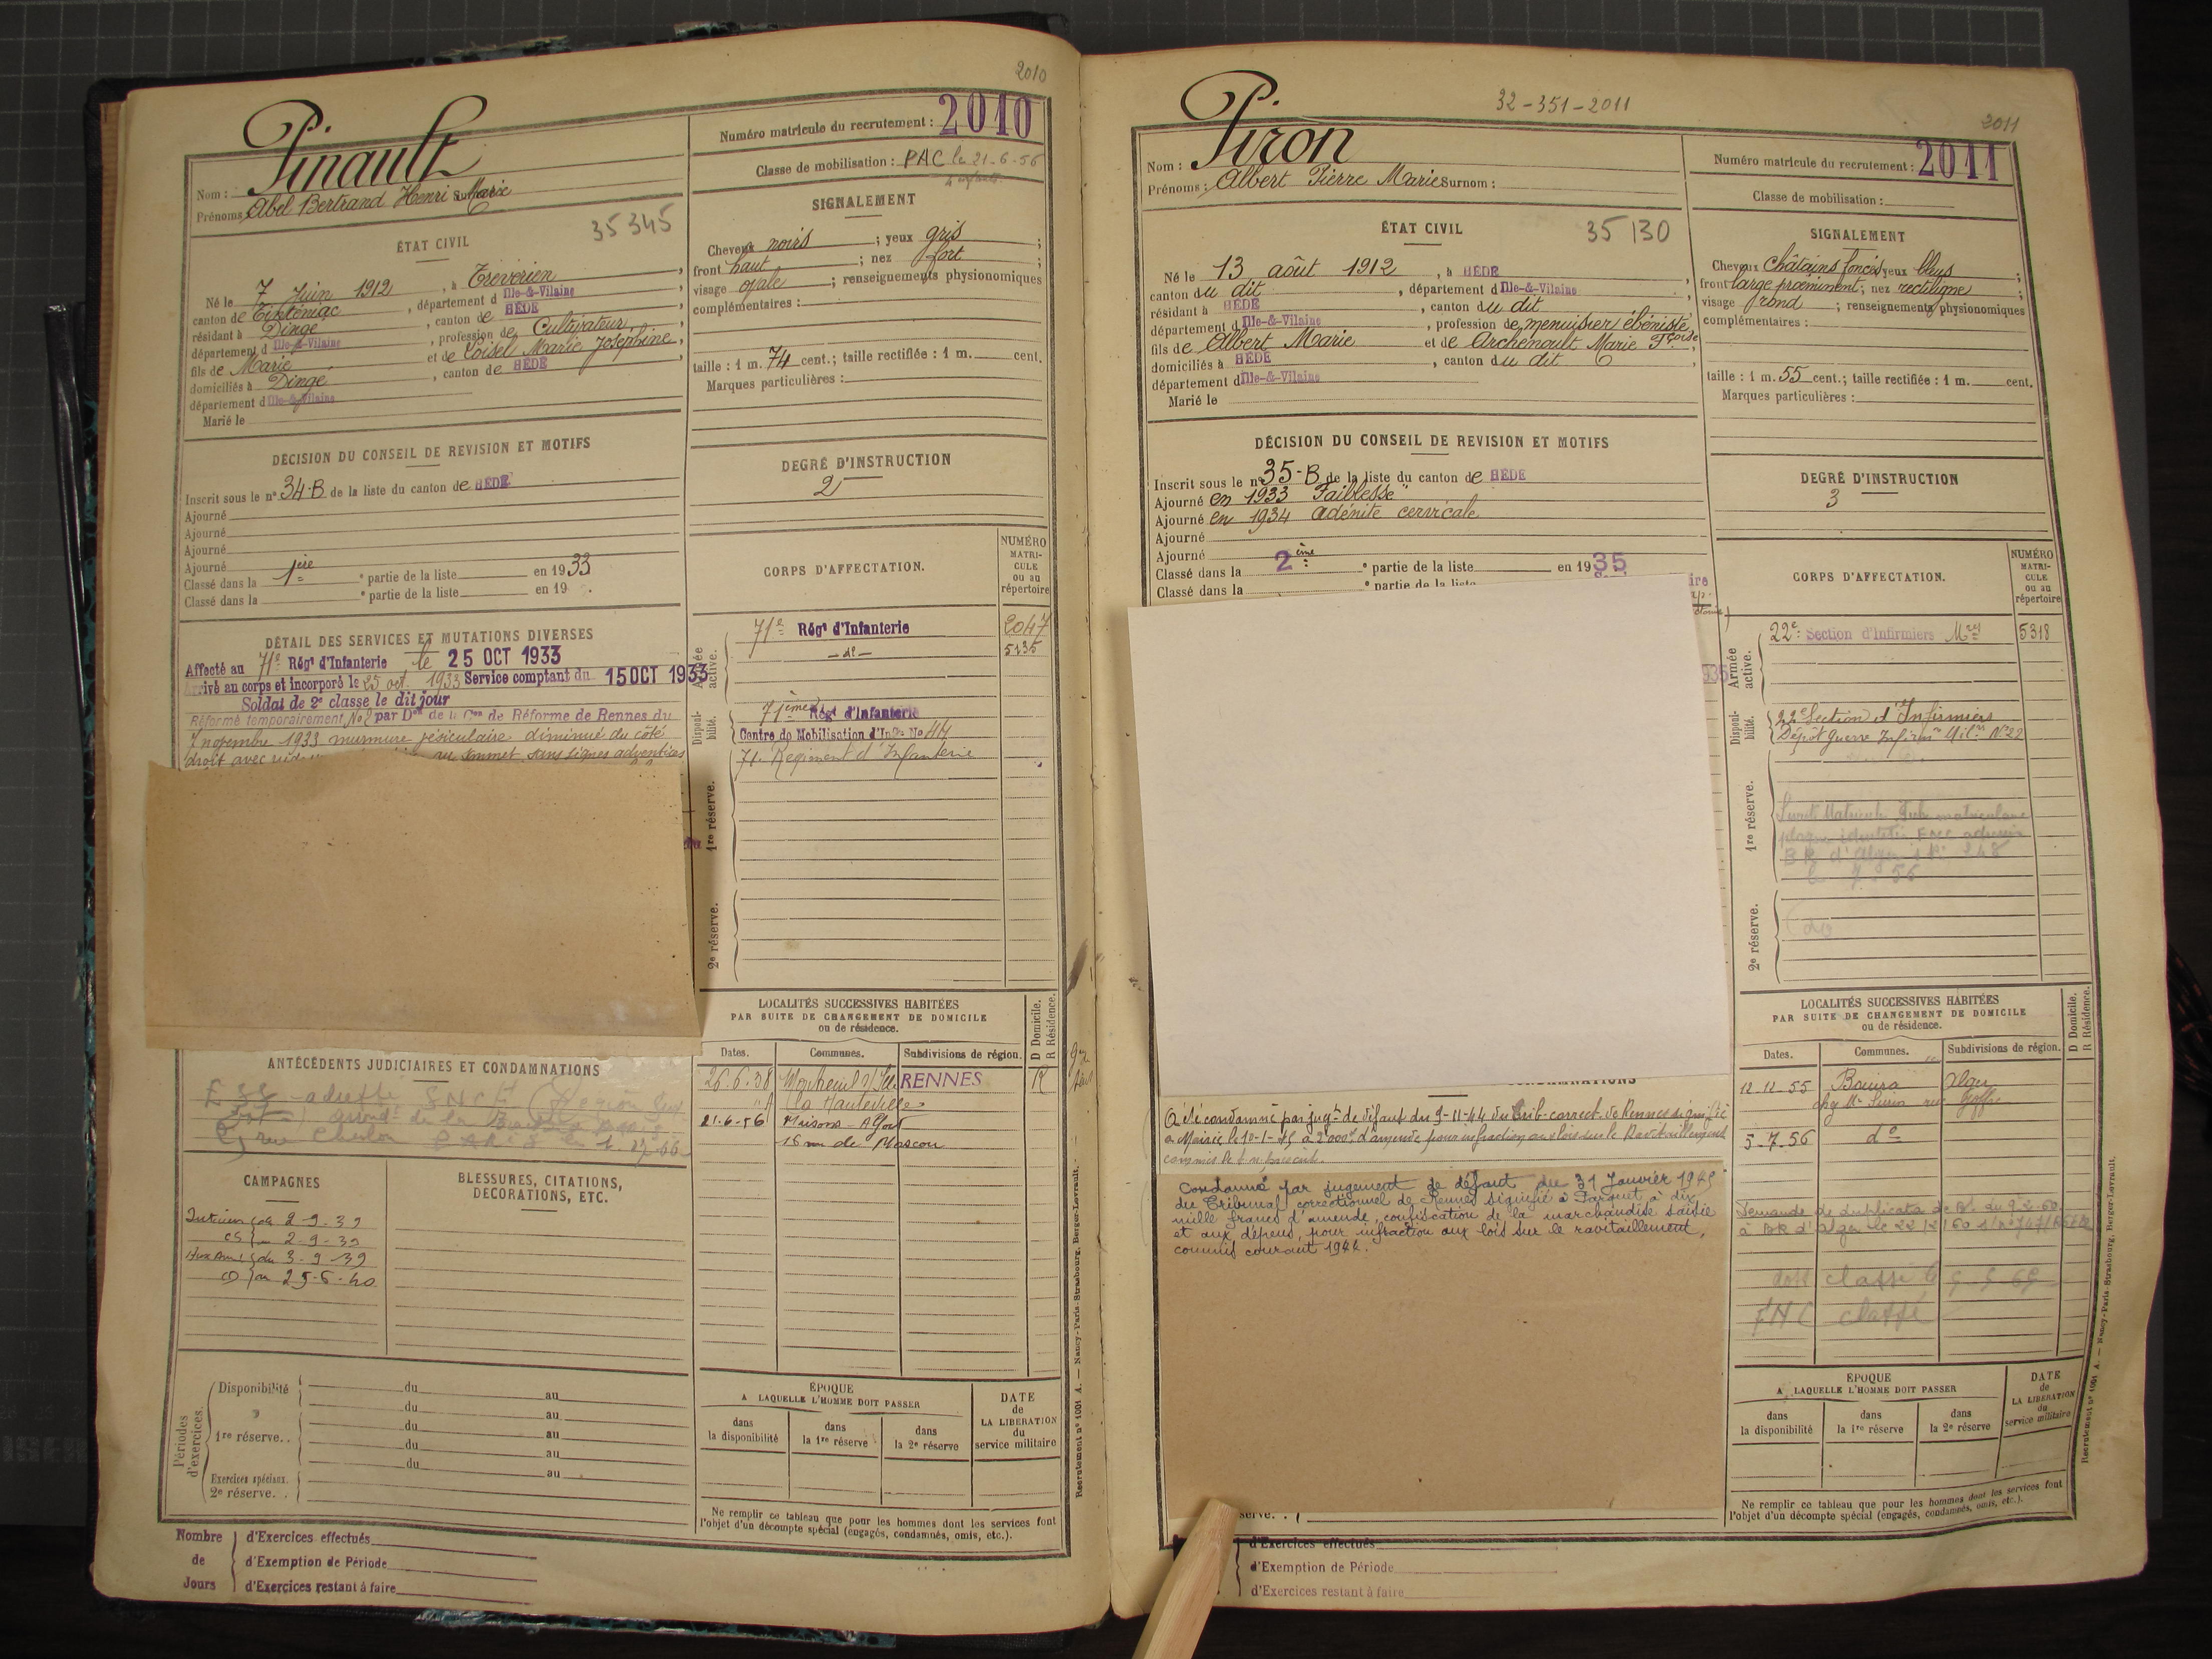 2010
Pinault
Nom :
Prénoms : Abel Bertrand Henri Marie
Numéro matricule du recrutement : 2010
Classe de mobilisation : PAC le 21-6-56
35345
ÉTAT CIVIL
Né le 7 Juin 1912, à Trevérien,
canton de Tinténiac, département d Ille-&-Vilaine
résidant à Dingé, canton de HÉDÉ
département d Ille-&-Vilaine, profession de Cultivateur,
fils de Marie et de Loisel Marie Joséphine,
domiciliés à Dingé, canton de HÉDÉ
département d Ille-&-Vilaine
Marié le
SIGNALEMENT
Cheveux noirs ; yeux gris ;
front haut ; nez fort ;
visage ovale ; renseignements physionomiques
complémentaires :
taille : 1 m. 74 cent.; taille rectifiée : 1 m. cent.
Marques particulières :
DÉCISION DU CONSEIL DE REVISION ET MOTIFS
Inscrit sous le n° 34-B de la liste du canton de HÉDÉ
Ajourné
Ajourné
Ajourné
Ajourné
Classé dans la 1ère partie de la liste en 1933
Classé dans la ° partie de la liste en 19 .
DEGRÉ D'INSTRUCTION
2
DÉTAIL DES SERVICES ET MUTATIONS DIVERSES
Affecté au 71e Régt d'Infanterie le 25 OCT 1933
Arrivé au corps et incorporé le 25 oct. 1933 Service comptant du 15 OCT 1933
Soldat de 2e classe le dit jour
Réformé temporairement No 2 par Don de la Con de Réforme de Rennes du
7 novembre 1933 murmure vésiculaire diminué du côté
droit avec au sommet sans signes adventices
CORPS D'AFFECTATION.
NUMÉRO MATRI-CULE ou au répertoire
Armée active.
71e Régt d'Infanterie 2047
-do- 5135
Disponi-bilité.
71ème Régt d'Infanterie
Centre de Mobilisation d'Infie No 44
71e Régiment d'Infanterie
1re réserve.
2e réserve.
LOCALITÉS SUCCESSIVES HABITÉES
PAR SUITE DE CHANGEMENT DE DOMICILE
ou de résidence.
D Domicile.
R Résidence.
Dates. Communes. Subdivisions de région.
26.6.38 Montreuil s/Ille RENNES R
la Hauteville
21-6-56 Maisons-Alfort
15 rue de Moscou
ANTÉCÉDENTS JUDICIAIRES ET CONDAMNATIONS
CAMPAGNES
Intérieur du 2-9-39
CS au 2-9-39
du 3-9-39
au 25-6-40
BLESSURES, CITATIONS,
DÉCORATIONS, ETC.
Périodes d'exercices.
Disponibilité du au
du au
1re réserve. . du au
du au
du au
Exercices spéciaux.
2e réserve. .
ÉPOQUE
A LAQUELLE L'HOMME DOIT PASSER
dans la disponibilité
dans la 1re réserve
dans la 2e réserve
DATE de LA LIBÉRATION du service militaire
Ne remplir ce tableau que pour les hommes dont les services font
l'objet d'un décompte spécial (engagés, condamnés, omis, etc.).
Recrutement n° 1001 A. — Nancy-Paris-Strasbourg, Berger-Levrault.
Nombre de Jours
d'Exercices effectués
d'Exemption de Période
d'Exercices restant à faire
32-351-2011
2011
Piron
Nom :
Prénoms : Albert Pierre Marie Surnom :
Numéro matricule du recrutement : 2011
Classe de mobilisation :
ÉTAT CIVIL
35130
Né le 13 août 1912, à HÉDÉ
canton du dit, département d Ille-&-Vilaine
résidant à HÉDÉ, canton du dit
département d Ille-&-Vilaine, profession de menuisier ébéniste
fils de Albert Marie et de Archenoult Marie Fçoise,
domiciliés à HÉDÉ, canton du dit
département d Ille-&-Vilaine
Marié le
SIGNALEMENT
Cheveux châtains foncés yeux bleus ;
front large proéminent ; nez rectiligne ;
visage rond ; renseignements physionomiques
complémentaires :
taille : 1 m. 55 cent.; taille rectifiée : 1 m. cent.
Marques particulières :
DÉCISION DU CONSEIL DE REVISION ET MOTIFS
Inscrit sous le n° 35-B de la liste du canton de HÉDÉ
Ajourné en 1933 "Faiblesse"
Ajourné en 1934 adénite cervicale
Ajourné
Ajourné
Classé dans la 2ème ° partie de la liste en 1935
Classé dans la ° partie de la liste
DEGRÉ D'INSTRUCTION
3
CORPS D'AFFECTATION.
NUMÉRO MATRI-CULE ou au répertoire
Armée active.
22e Section d'Infirmiers Mres 5318
Disponi-bilité.
22e Section d'Infirmiers
Dépôt Guerre Infirm. Milres No 22
1re réserve.
2e réserve.
LOCALITÉS SUCCESSIVES HABITÉES
PAR SUITE DE CHANGEMENT DE DOMICILE
ou de résidence.
D Domicile.
R Résidence.
Dates. Communes. Subdivisions de région.
12-12-55 Bouira Alger
5-7-56 do
Demande de duplicata de du 9-2-60
à BR d'Alger le 22/2/60
classé le
FNC classé
A été condamné par jugt de défaut du 9-11-44 du Trib. correct. de Rennes signifié
à Mairie le 10-1-45 à 2000f d'amende pour infraction aux lois sur le Ravitaillement
Condamné par jugement de défaut du 31 Janvier 1945
du Tribunal correctionnel de Rennes signifié à Parquet à dix
mille francs d'amende, confiscation de la marchandise saisie
et aux dépens, pour infraction aux lois sur le ravitaillement,
commis courant 1944.
ÉPOQUE
A LAQUELLE L'HOMME DOIT PASSER
dans la disponibilité
dans la 1re réserve
dans la 2e réserve
DATE de LA LIBÉRATION du service militaire
Ne remplir ce tableau que pour les hommes dont les services font
l'objet d'un décompte spécial (engagés, condamnés, omis, etc.).
Recrutement n° 1001 A. — Nancy-Paris-Strasbourg, Berger-Levrault.
d'Exercices effectués
d'Exemption de Période
d'Exercices restant à faire